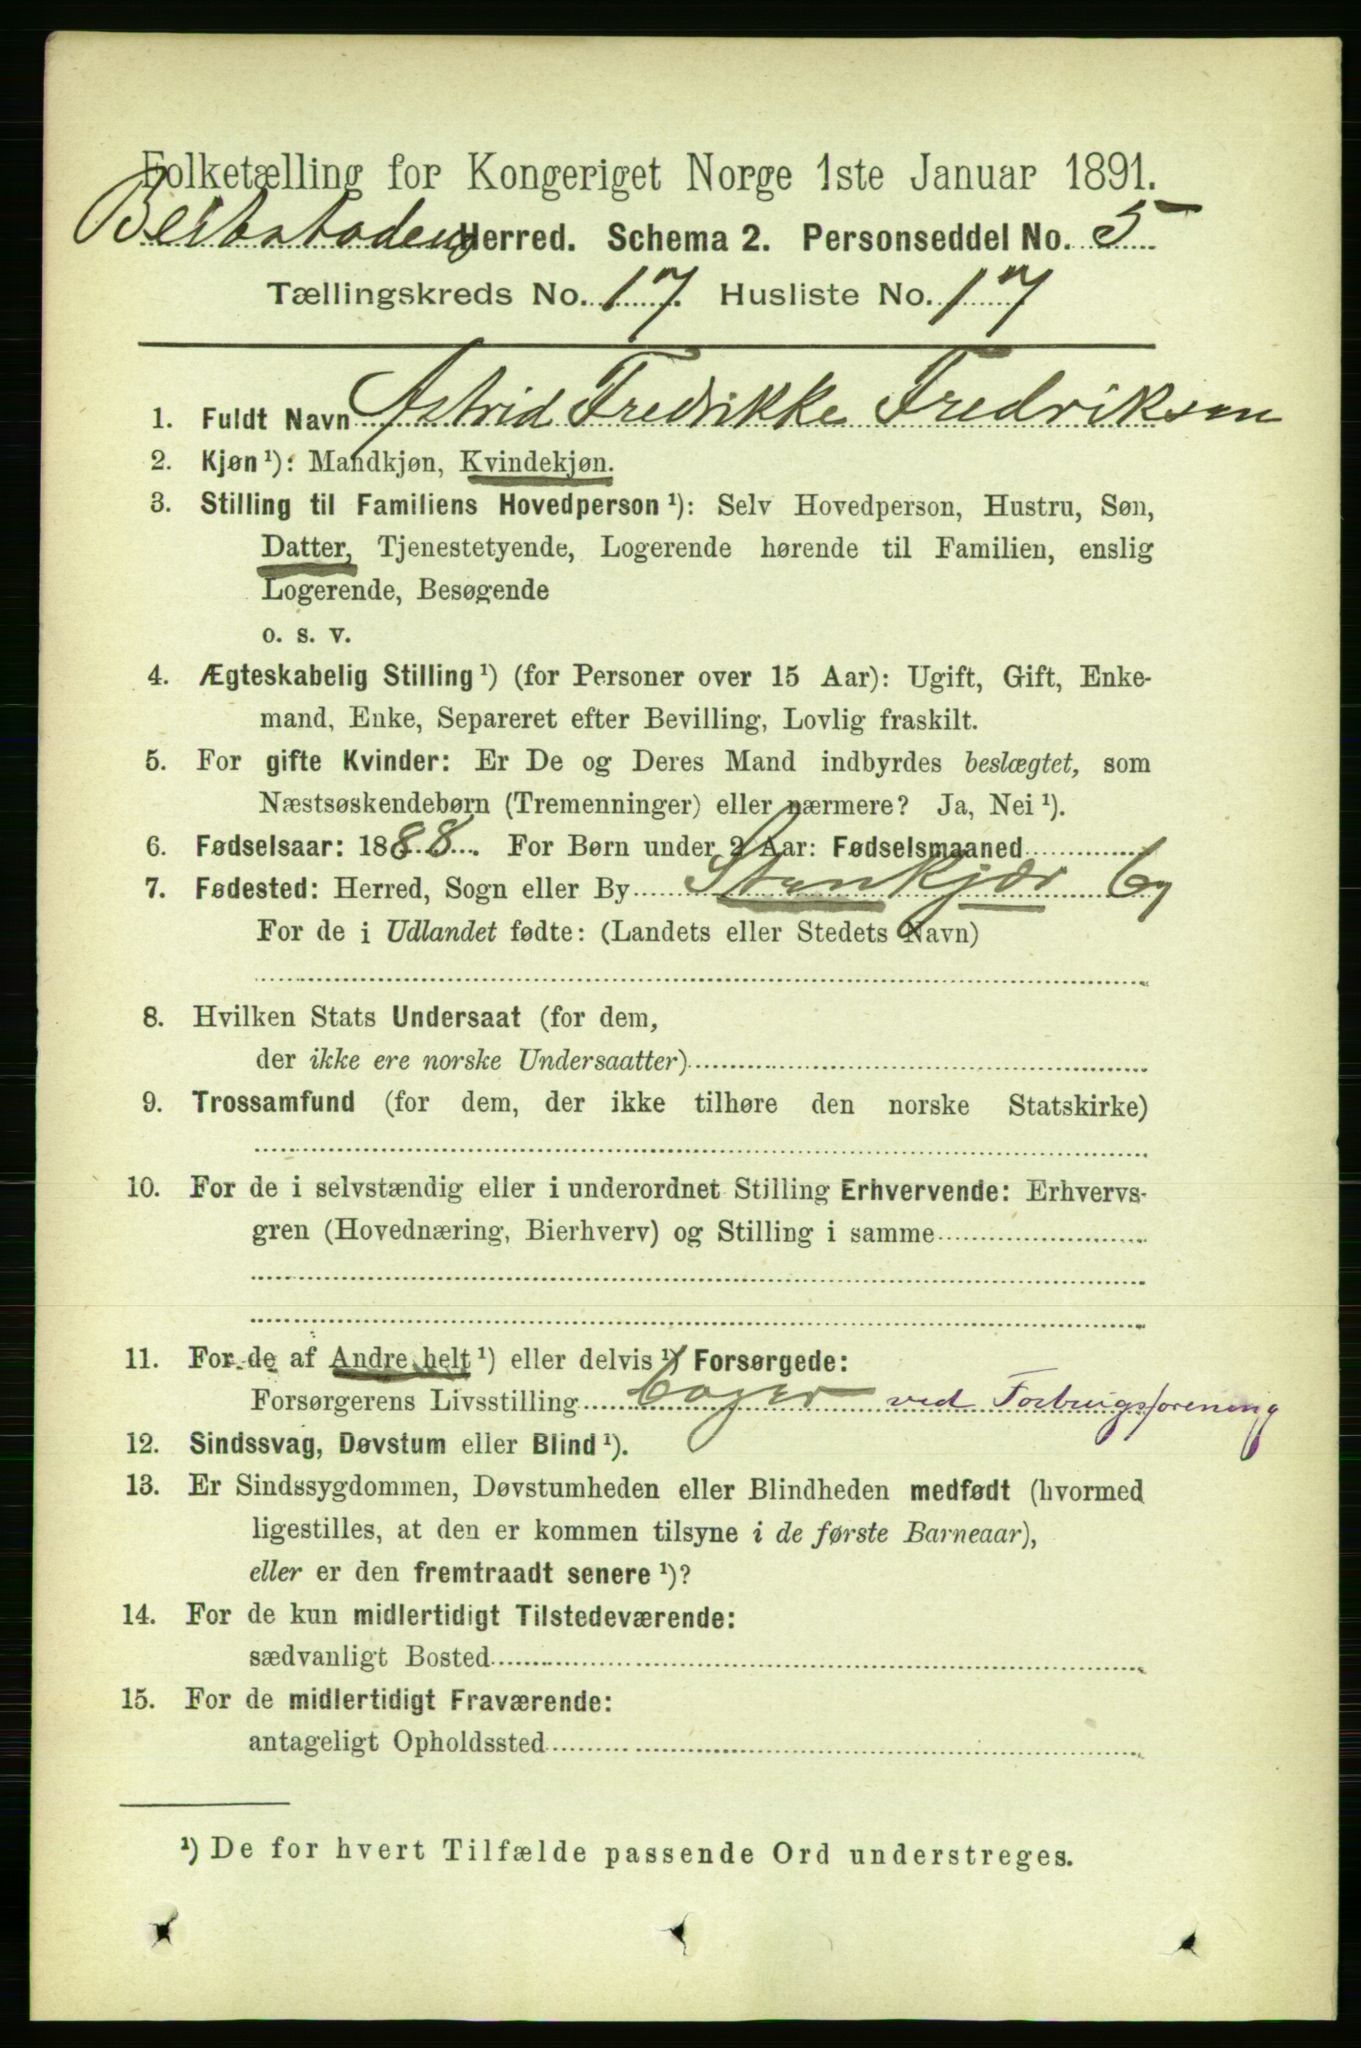 Folketælling for Kongeriget Norge 1ste Januar 1891.
Beitstadens Herred. Schema 2. Personseddel No. 5
Tællingskreds No. 17. Husliste No. 17
1. Fuldt Navn Astrid Fredrikke Fredriksen
2. Kjøn ¹): Mandkjøn, Kvindekjøn.
3. Stilling til Familiens Hovedperson ¹): Selv Hovedperson, Hustru, Søn,
Datter, Tjenestetyende, Logerende hørende til Familien, enslig
Logerende, Besøgende
o. s. v.
4. Ægteskabelig Stilling ¹) (for Personer over 15 Aar): Ugift, Gift, Enke-
mand, Enke, Separeret efter Bevilling, Lovlig fraskilt.
5. For gifte Kvinder: Er De og Deres Mand indbyrdes beslægtet, som
Næstsøskendebørn (Tremenninger) eller nærmere? Ja, Nei ¹).
6. Fødselsaar: 1888. For Børn under 2 Aar: Fødselsmaaned
7. Fødested: Herred, Sogn eller By Stenkjær By
For de i Udlandet fødte: (Landets eller Stedets Navn)
8. Hvilken Stats Undersaat (for dem,
der ikke ere norske Undersaatter)
9. Trossamfund (for dem, der ikke tilhøre den norske Statskirke)
10. For de i selvstændig eller i underordnet Stilling Erhvervende: Erhvervs-
gren (Hovednæring, Bierhverv) og Stilling i samme
11. For de af Andre helt ¹) eller delvis ¹) Forsørgede:
Forsørgerens Livsstilling Bager ved Forbrugsforening
12. Sindssvag, Døvstum eller Blind ¹).
13. Er Sindssygdommen, Døvstumheden eller Blindheden medfødt (hvormed
ligestilles, at den er kommen tilsyne i de første Barneaar),
eller er den fremtraadt senere ¹)?
14. For de kun midlertidigt Tilstedeværende:
sædvanligt Bosted
15. For de midlertidigt Fraværende:
antageligt Opholdssted
¹) De for hvert Tilfælde passende Ord understreges.